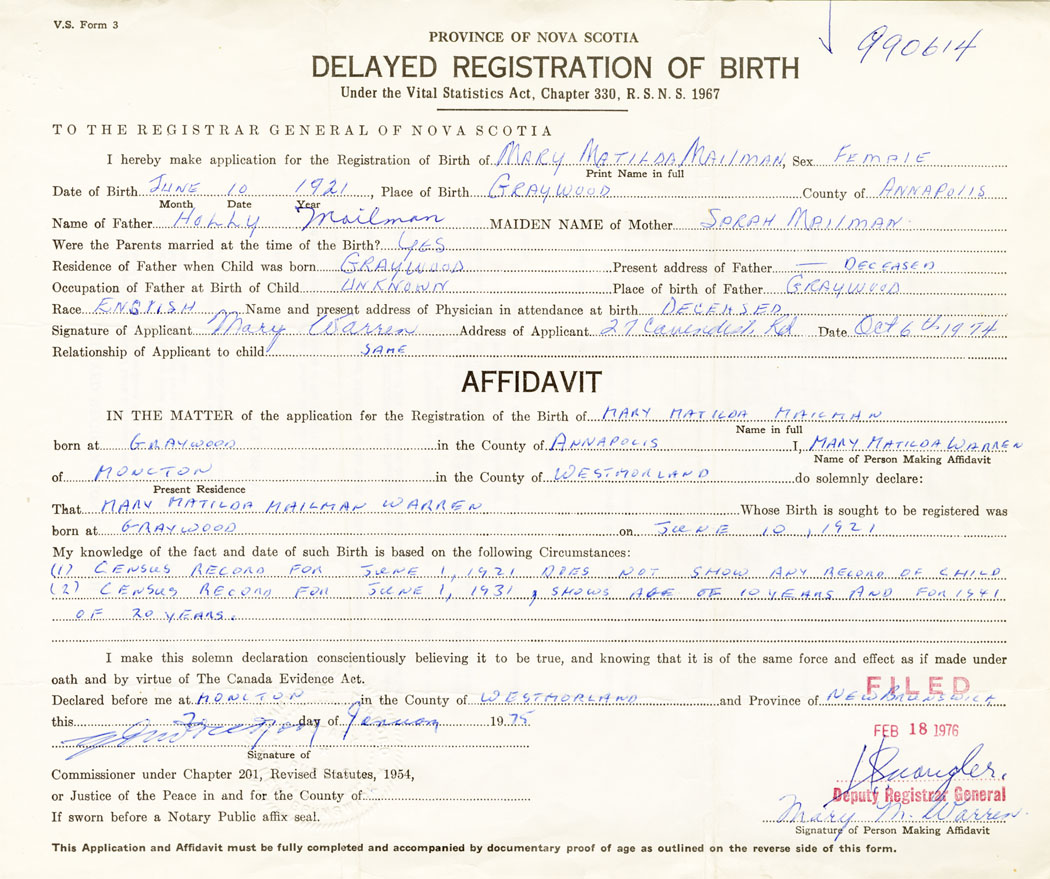 V.S. Form 3
990614
PROVINCE OF NOVA SCOTIA
DELAYED REGISTRATION OF BIRTH
Under the Vital Statistics Act, Chapter 330, R. S. N. S. 1967
TO THE REGISTRAR GENERAL OF NOVA SCOTIA
I hereby make application for the Registration of Birth of MARY MATILDA MAILMAN, Sex FEMALE
Print Name in full
Date of Birth JUNE 10 1921, Place of Birth GRAYWOOD County of ANNAPOLIS
Month Date Year
Name of Father HOLLY Mailman MAIDEN NAME of Mother SARAH MAILMAN
Were the Parents married at the time of the Birth? YES
Residence of Father when Child was born GRAYWOOD Present address of Father — DECEASED
Occupation of Father at Birth of Child UNKNOWN Place of birth of Father GRAYWOOD
Race ENGLISH Name and present address of Physician in attendance at birth DECEASED
Signature of Applicant Mary Warren Address of Applicant 27 Cavendish Rd Date Oct 6th 1974
Relationship of Applicant to child SAME
AFFIDAVIT
IN THE MATTER of the application for the Registration of the Birth of MARY MATILDA MAILMAN
Name in full
born at GRAYWOOD in the County of ANNAPOLIS I, MARY MATILDA WARREN
Name of Person Making Affidavit
of MONCTON in the County of WESTMORLAND do solemnly declare:
Present Residence
That MARY MATILDA MAILMAN WARREN Whose Birth is sought to be registered was
born at GRAYWOOD on JUNE 10, 1921
My knowledge of the fact and date of such Birth is based on the following Circumstances:
(1) CENSUS RECORD FOR JUNE 1, 1921 DOES NOT SHOW ANY RECORD OF CHILD
(2) CENSUS RECORD FOR JUNE 1, 1931, SHOWS AGE OF 10 YEARS AND FOR 1941
OF 20 YEARS.
I make this solemn declaration conscientiously believing it to be true, and knowing that it is of the same force and effect as if made under
oath and by virtue of The Canada Evidence Act.
Declared before me at MONCTON in the County of WESTMORLAND and Province of NEW BRUNSWICK
FILED
this day of January 1975
FEB 18 1976
Signature of
Commissioner under Chapter 201, Revised Statutes, 1954,
or Justice of the Peace in and for the County of
Deputy Registrar General
If sworn before a Notary Public affix seal.
Mary M. Warren
Signature of Person Making Affidavit
This Application and Affidavit must be fully completed and accompanied by documentary proof of age as outlined on the reverse side of this form.